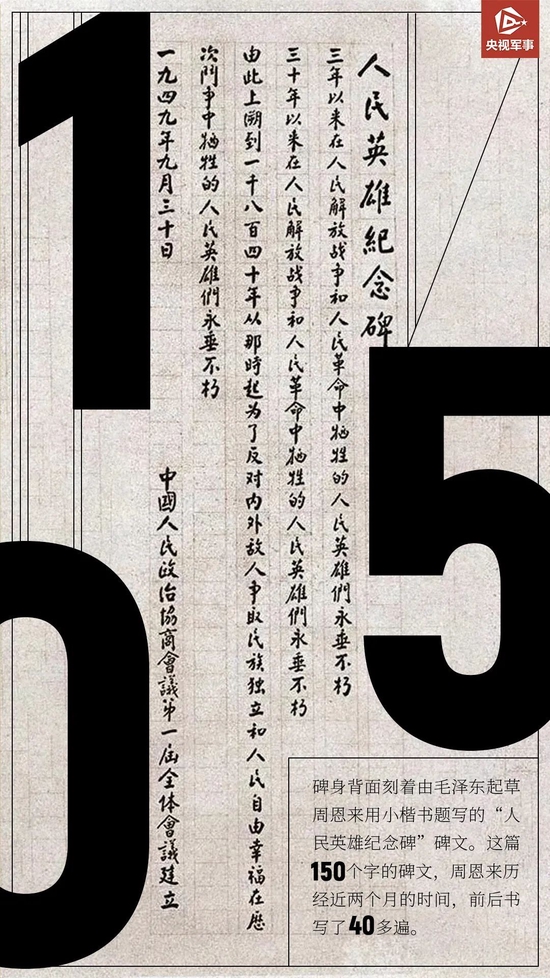 央视军事
1
5
0
人民英雄紀念碑
三年以来在人民解放战争和人民革命中牺牲的人民英雄們永垂不朽
三十年以来在人民解放战争和人民革命中牺牲的人民英雄們永垂不朽
由此上溯到一千八百四十年从那時起为了反对内外敌人争取民族独立和人民自由幸福在歷
次鬥争中牺牲的人民英雄們永垂不朽
一九四九年九月三十日
中國人民政治協商會議第一届全体會議建立
碑身背面刻着由毛泽东起草
周恩来用小楷书题写的“人
民英雄纪念碑”碑文。这篇
150个字的碑文，周恩来历
经近两个月的时间，前后书
写了40多遍。